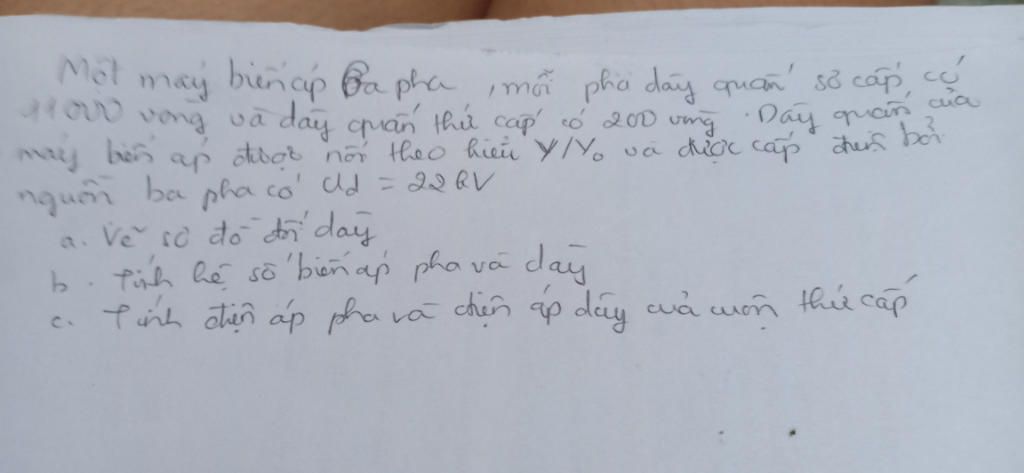 Một máy biến áp Ba pha, mỗi pha dây quấn sơ cấp có
11000 vòng và dây quấn thứ cấp có 200 vòng. Dây quấn của
máy biến áp được nối theo kiểu Y/Y₀ và được cấp điện bởi
nguồn ba pha có Ud = 22kV
a. Vẽ sơ đồ đấu dây
b. Tính hệ số biến áp pha và dây
c. Tính điện áp pha và điện áp dây của cuộn thứ cấp